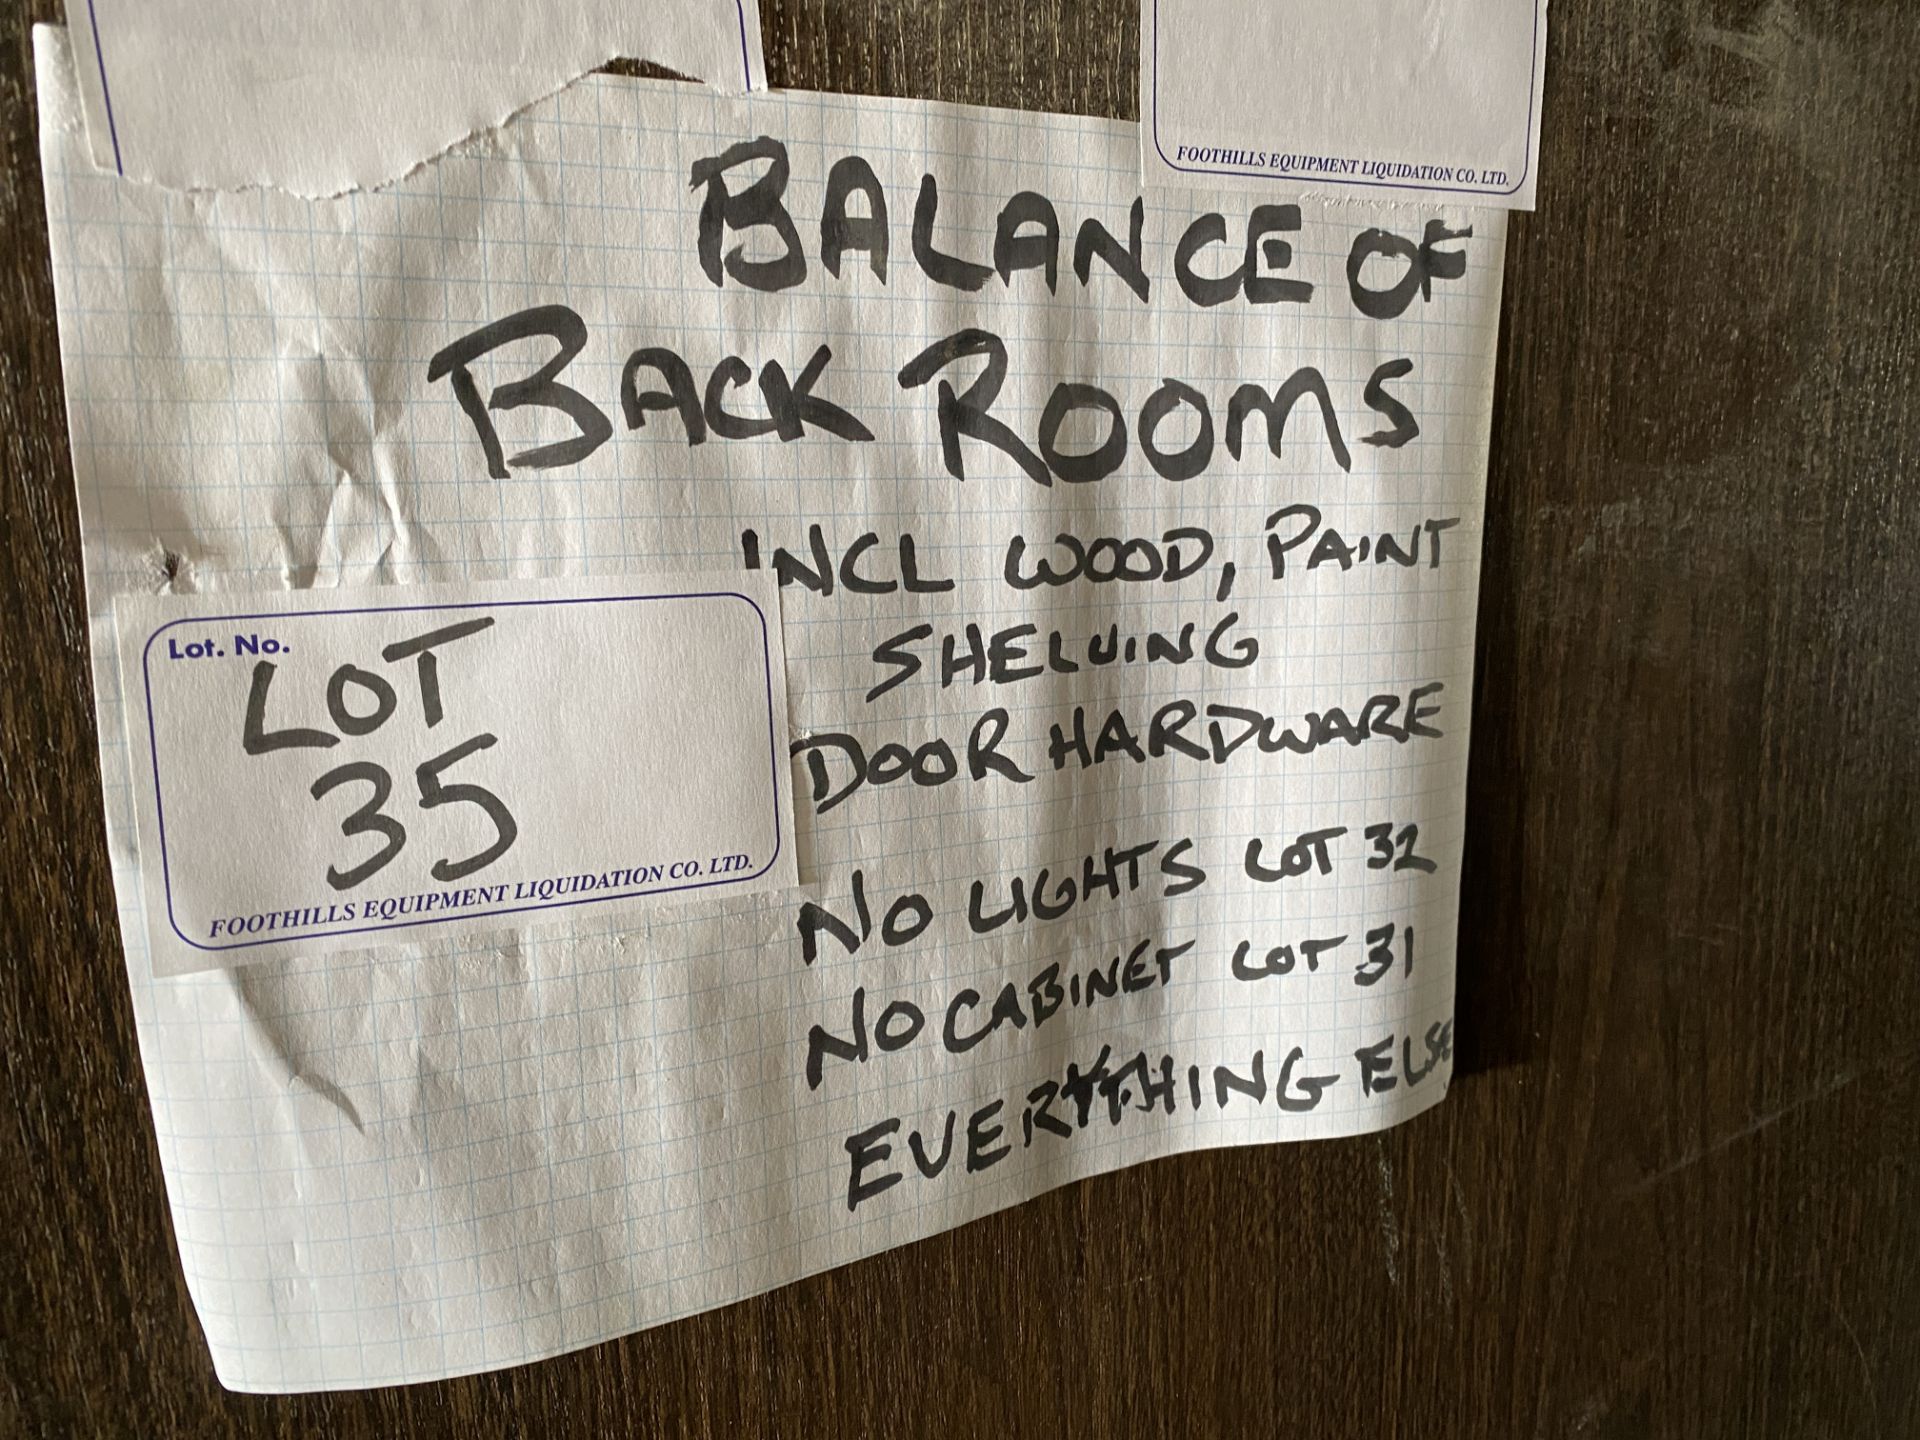 FOOTHILLS EQUIPMENT LIQUIDATION CO. LTD.
BALANCE OF
BACK ROOMS
INCL WOOD, PAINT
SHELVING
DOOR HARDWARE
NO LIGHTS LOT 32
NO CABINET LOT 31
EVERYTHING ELSE
Lot. No.
LOT
35
FOOTHILLS EQUIPMENT LIQUIDATION CO. LTD.